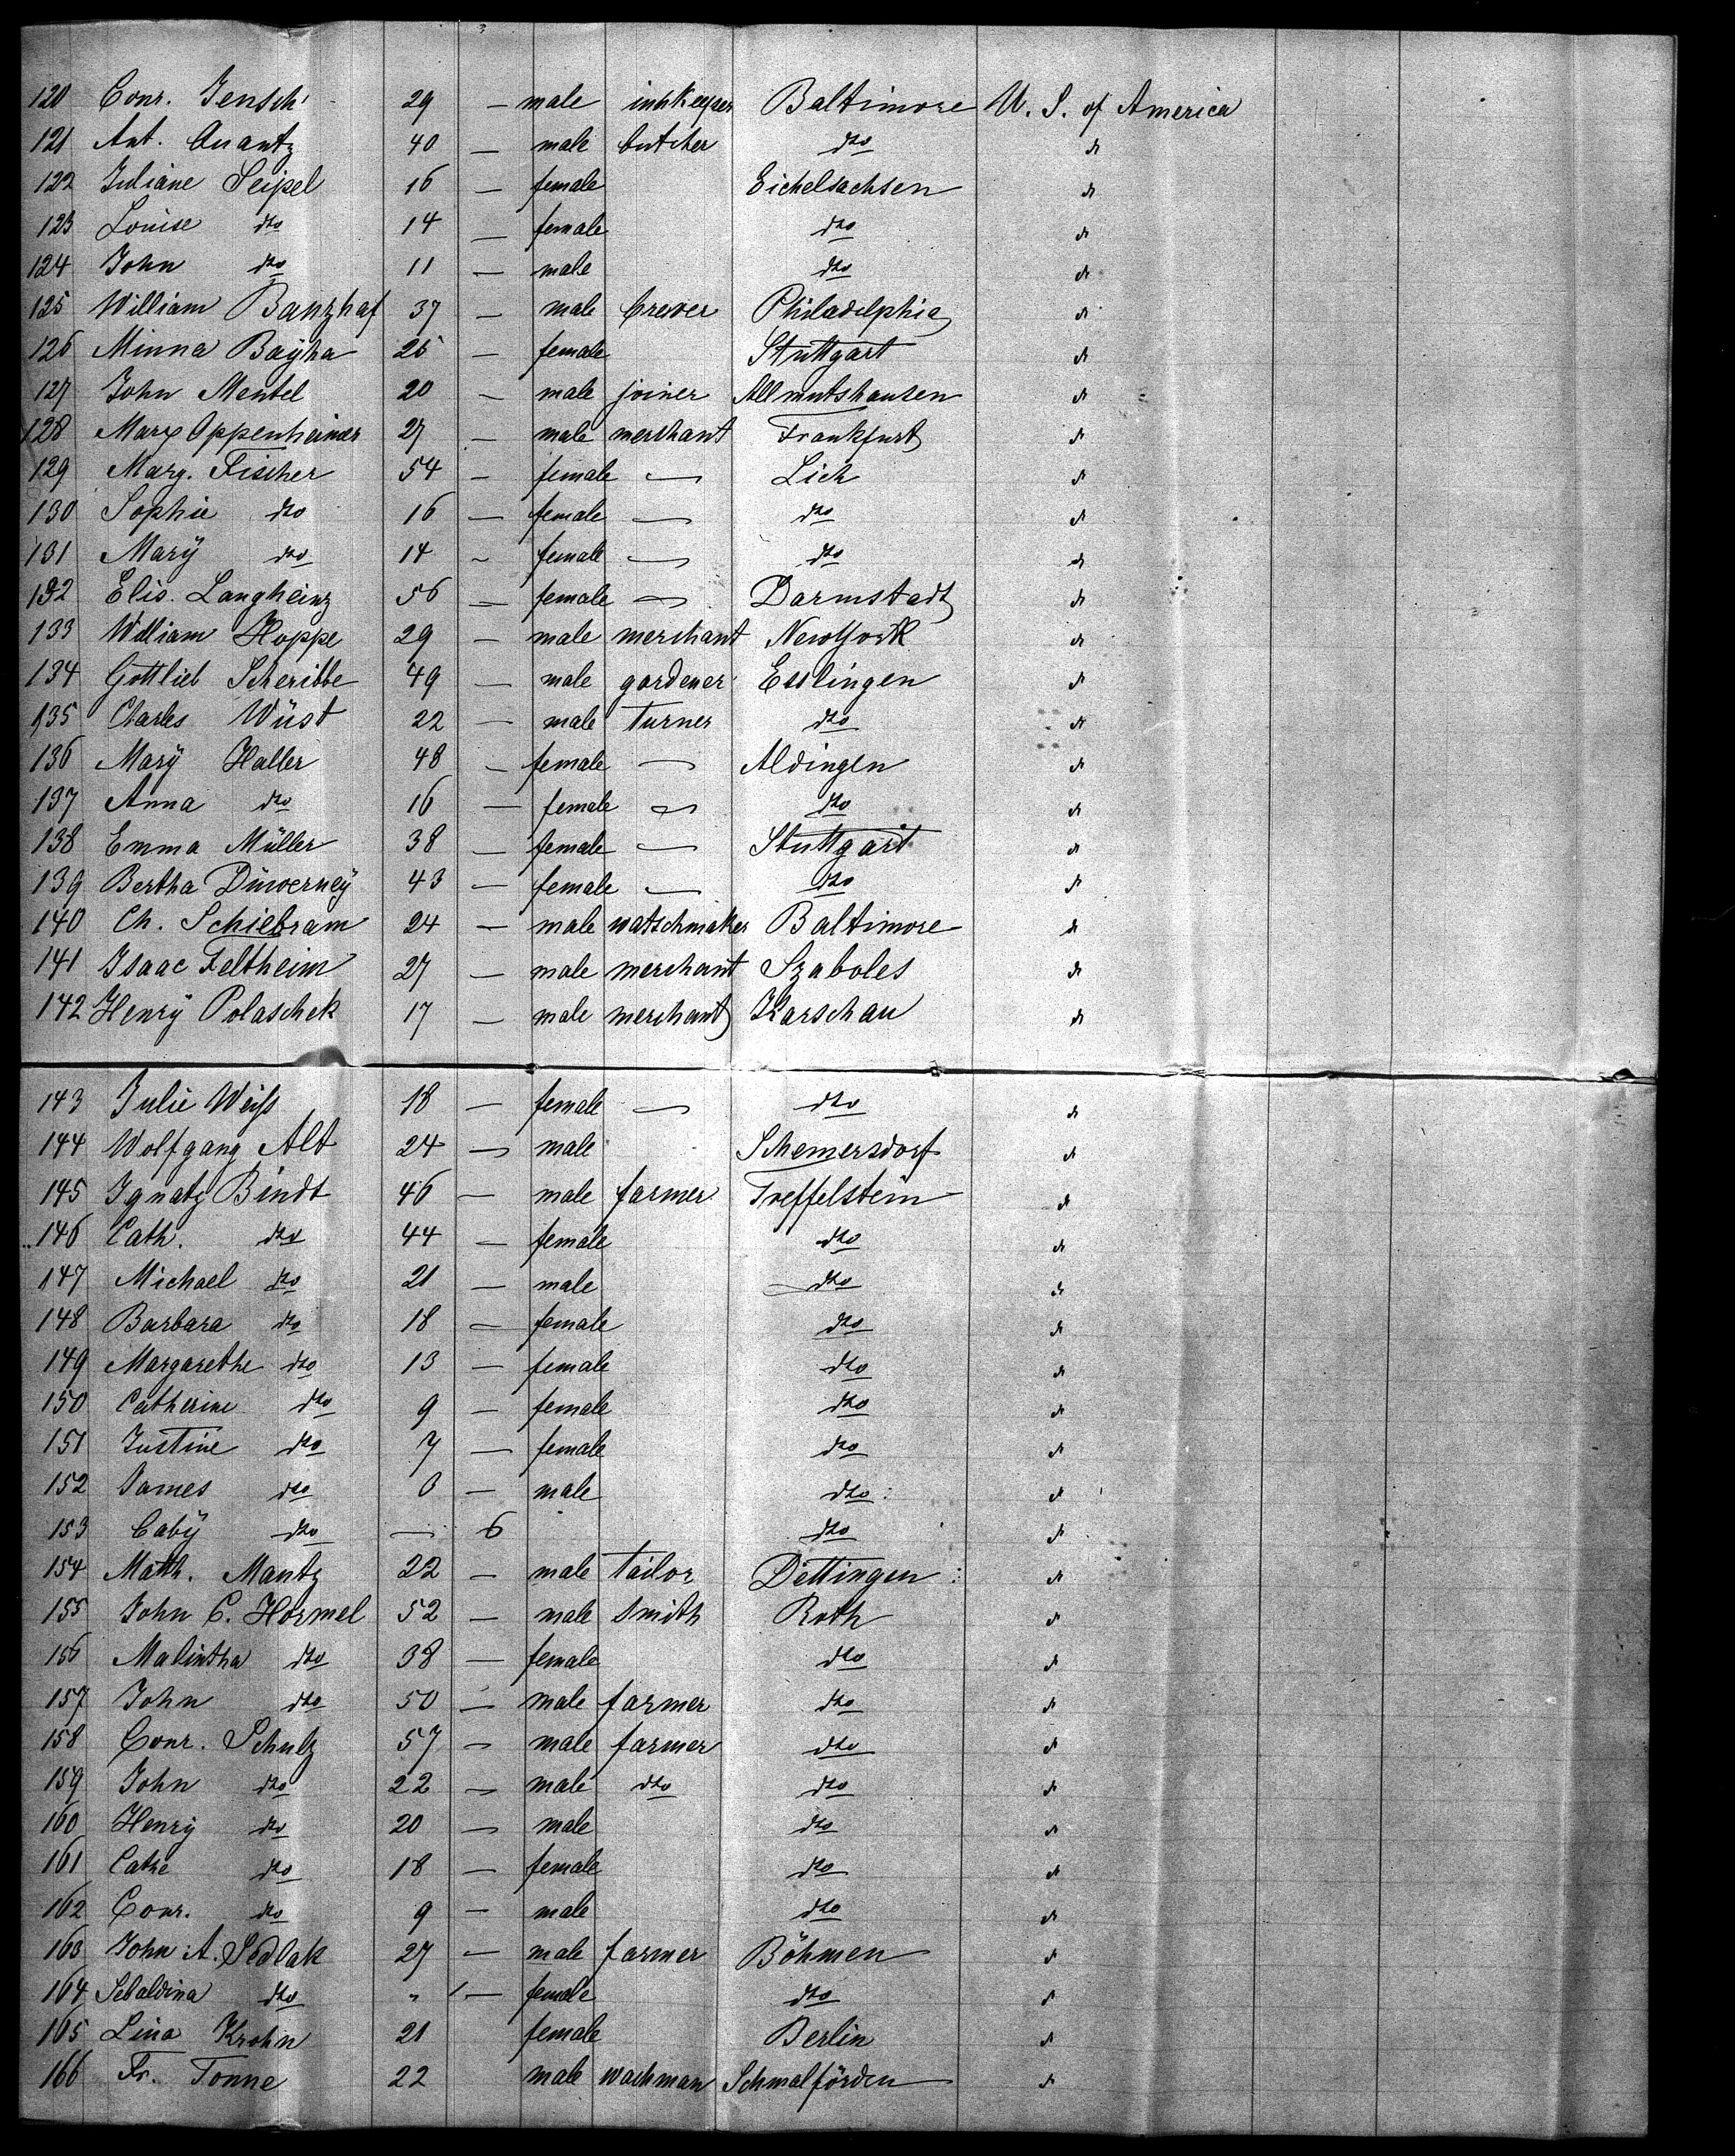 120 Conr. Jensch 29 — male innkeeper Baltimore U. S. of America
121 Ant. Quantz 40 — male butcher dto do
122 Juliane Seipel 16 — female Eichelsachsen do
123 Louise dto 14 — female dto do
124 John dto 11 — male dto do
125 William Banzhaf 37 — male brewer Philadelphia do
126 Minna Bayha 25 — female Stuttgart do
127 John Mantel 20 — male joiner Allmutshausen do
128 Marx Oppenheimer 27 — male merchant Frankfurt do
129 Marg. Fischer 54 — female — Lich do
130 Sophie dto 16 — female — dto do
131 Mary dto 14 — female — dto do
132 Elis. Langheinz 56 — female — Darmstadt do
133 William Hoppe 29 — male merchant NewYork do
134 Gottlieb Scheribbe 49 — male gardener Esslingen do
135 Charles Wüst 22 — male turner dto do
136 Mary Haller 48 — female — Aldingen do
137 Anna dto 16 — female — dto do
138 Emma Müller 38 — female — Stuttgart do
139 Bertha Düwerney 43 — female — dto do
140 Ch. Schiebram 24 — male watschmaker Baltimore do
141 Isaac Feltheim 27 — male merchant Szaboles do
142 Henry Polaschek 17 — male merchant Karschau do
143 Julie Weiss 18 — female — dto do
144 Wolfgang Alt 24 — male Schemersdorf do
145 Ignatz Bindt 46 — male farmer Treffelstein do
146 Cath. dto 44 — female dto do
147 Michael dto 21 — male dto do
148 Barbara dto 18 — female dto do
149 Margarethe dto 13 — female dto do
150 Catherine dto 9 — female dto do
151 Justine dto 7 — female dto do
152 James dto — male dto do
153 baby dto — 6 dto do
154 Math. Mantz 22 — male tailor Dettingen do
155 John C. Hormel 52 — male smith Roth do
156 Malintha dto 38 — female dto do
157 John dto 50 — male farmer dto do
158 Conr. Schulz 57 — male farmer dto do
159 John dto 22 — male dto dto do
160 Henry dto 20 — male dto do
161 Cathe dto 18 — female dto do
162 Conr. dto 9 — male dto do
163 John A. Sedlak 27 — male farmer Böhmen do
164 Sebaldina dto " 1 — female dto do
165 Lina Krohn 21 female Berlin do
166 Fr. Tonne 22 male wachman Schmalförden do